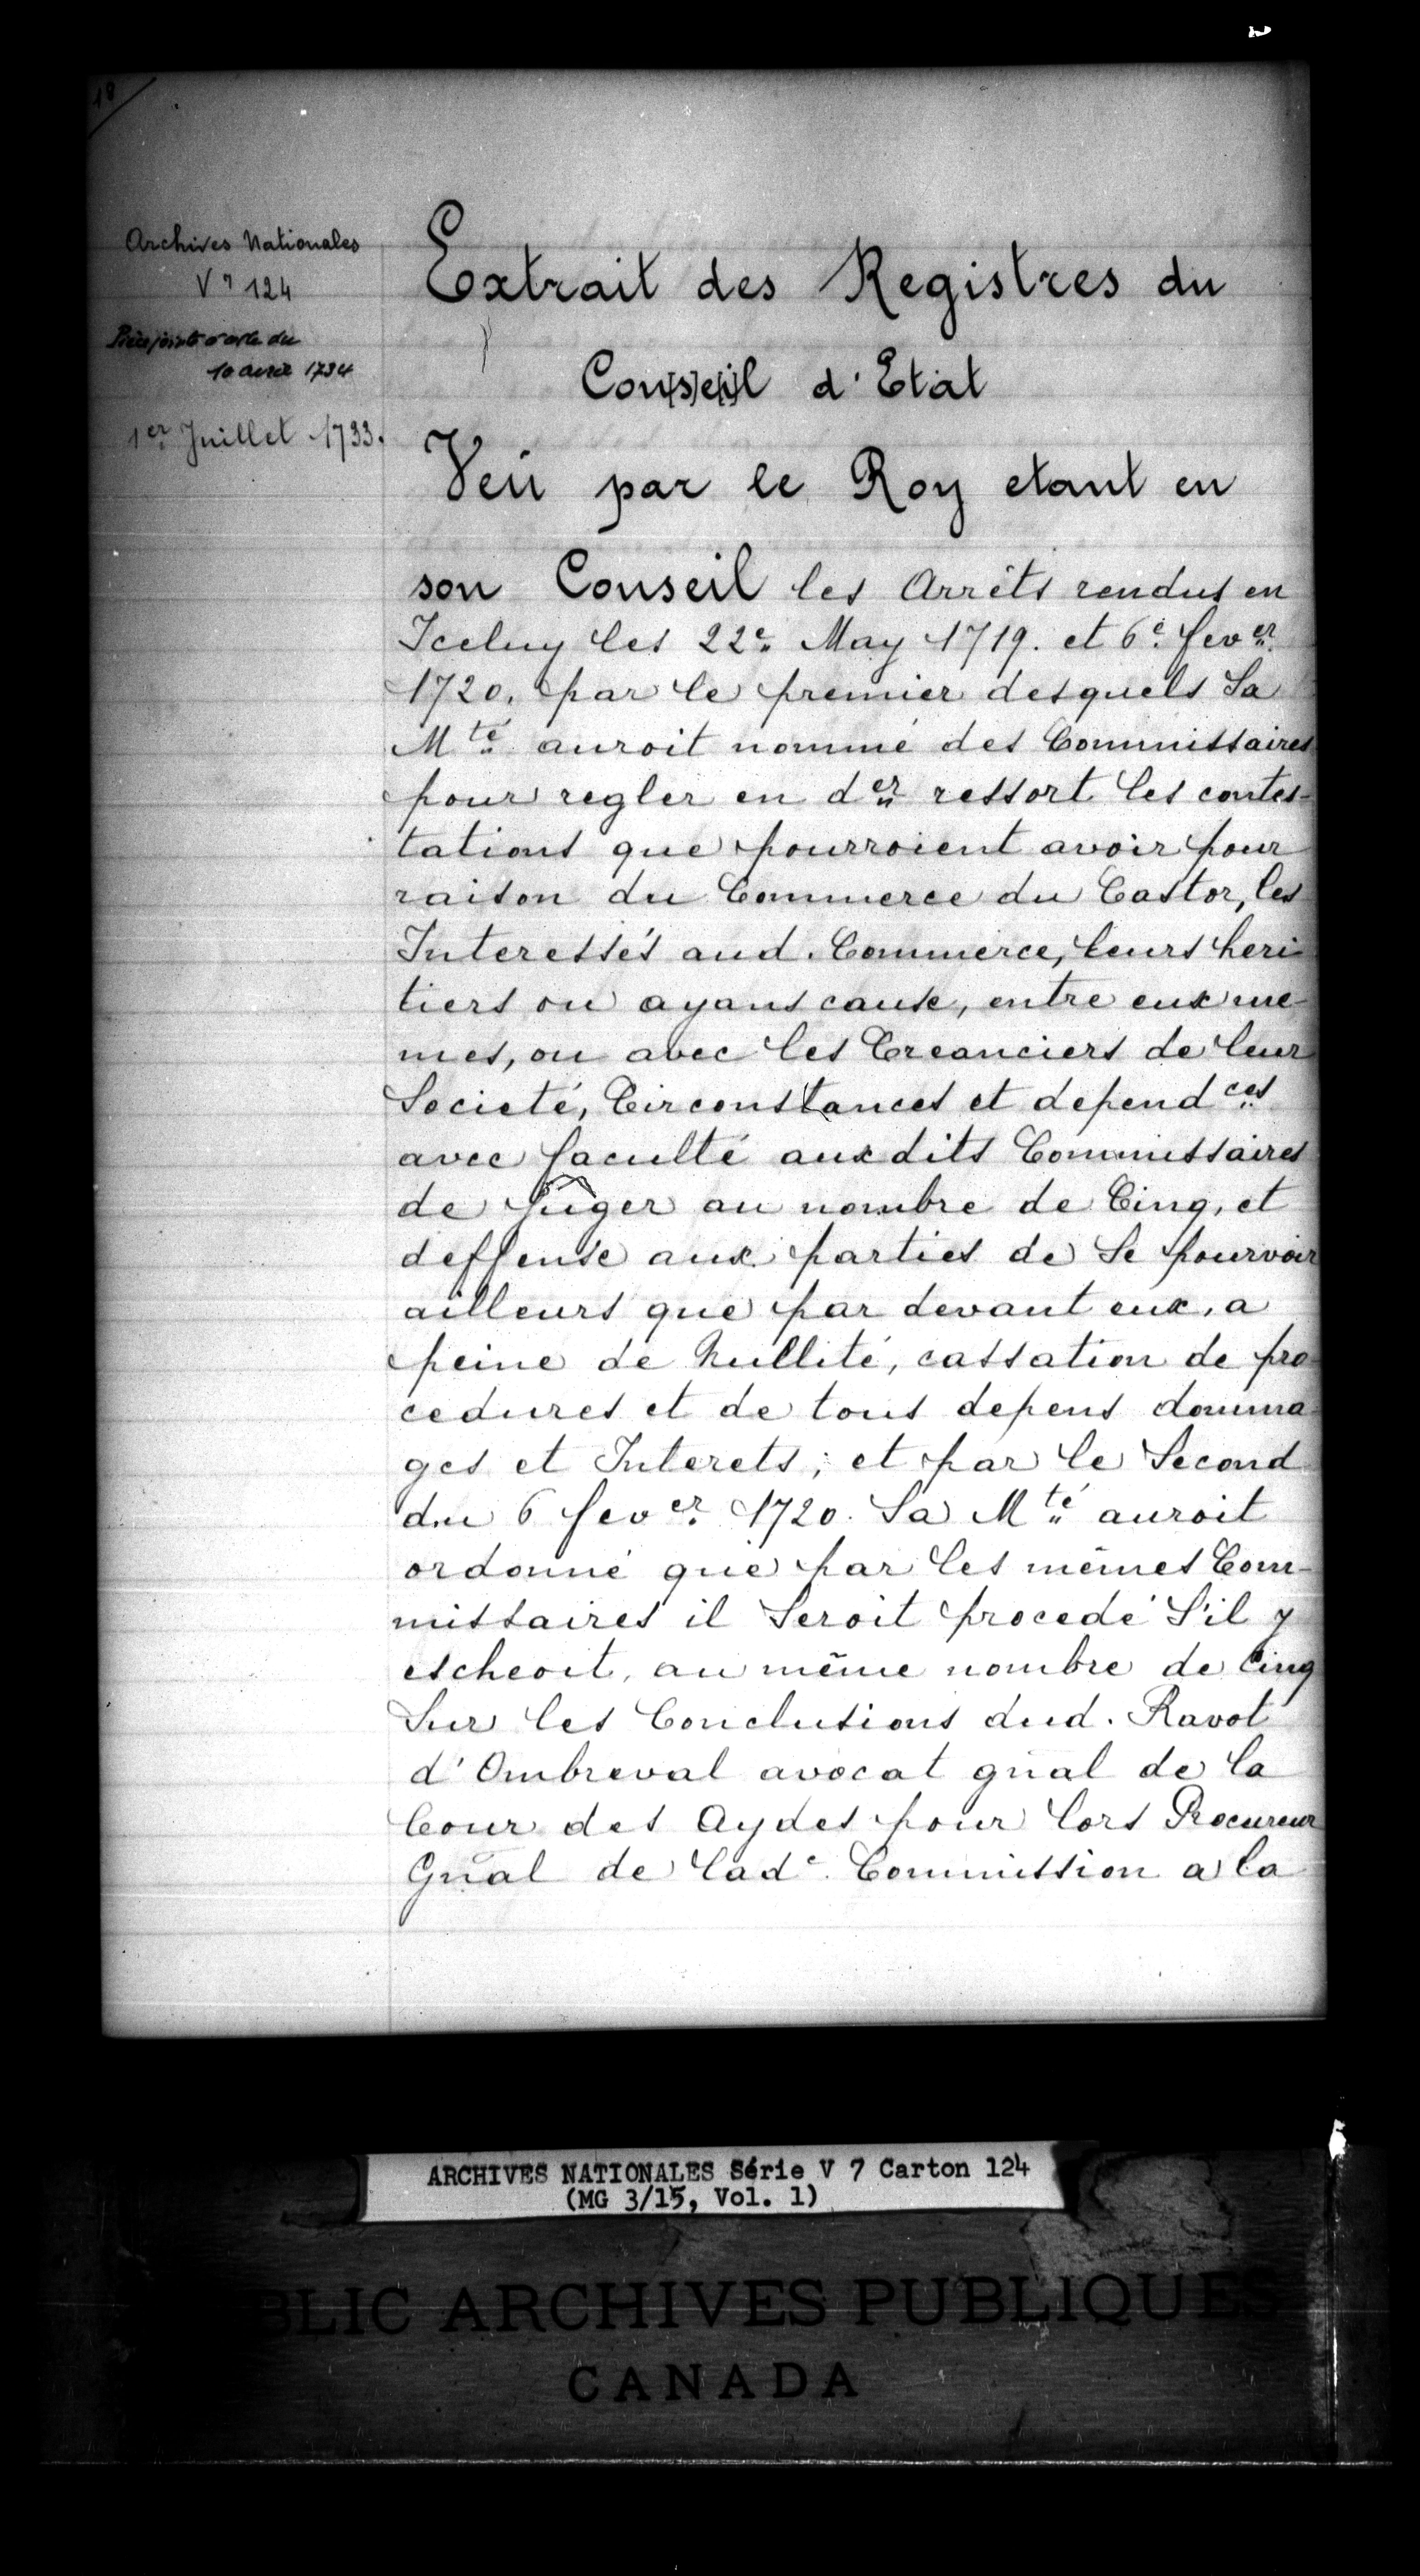 18
Archives Nationales
V 7 124
Pièce jointe à acte du
10 avril 1734
1er Juillet 1733.
Extrait des Registres du
Conseil d'Etat
Veü par le Roy etant en
son Conseil les Arrêts rendus en
Iceluy les 22e May 1719. et 6e fever
1720, par le premier desquels Sa
Mté auroit nommé des Commissaires
pour regler en der ressort les contes-
tations que pourroient avoir pour
raison du Commerce du Castor, les
Interessés aud. Commerce, leurs heri-
tiers ou ayans cause, entre eux me-
mes, ou avec les Creanciers de leur
Societé, Circonstances et dependces
avec faculté auxdits Commissaires
de Juger au nombre de Cinq, et
deffense aux parties de Se pourvoir
ailleurs que par devant eux, a
peine de Nullité, cassation de pro-
cedures et de tous depens domma-
ges et Interets; et par le Second
du 6 fever 1720. Sa Mté auroit
ordonné que par les mêmes Com-
missaires il Seroit procedé S'il y
escheoit, au même nombre de Cinq
Sur les Conclusions dud. Ravot
d'Ombreval avocat gnal de la
Cour des Aydes pour lors Procureur
Gnal de lade. Commission a la
ARCHIVES NATIONALES Série V 7 Carton 124
(MG 3/15, Vol. 1)
BLIC ARCHIVES PUBLIQUES
CANADA